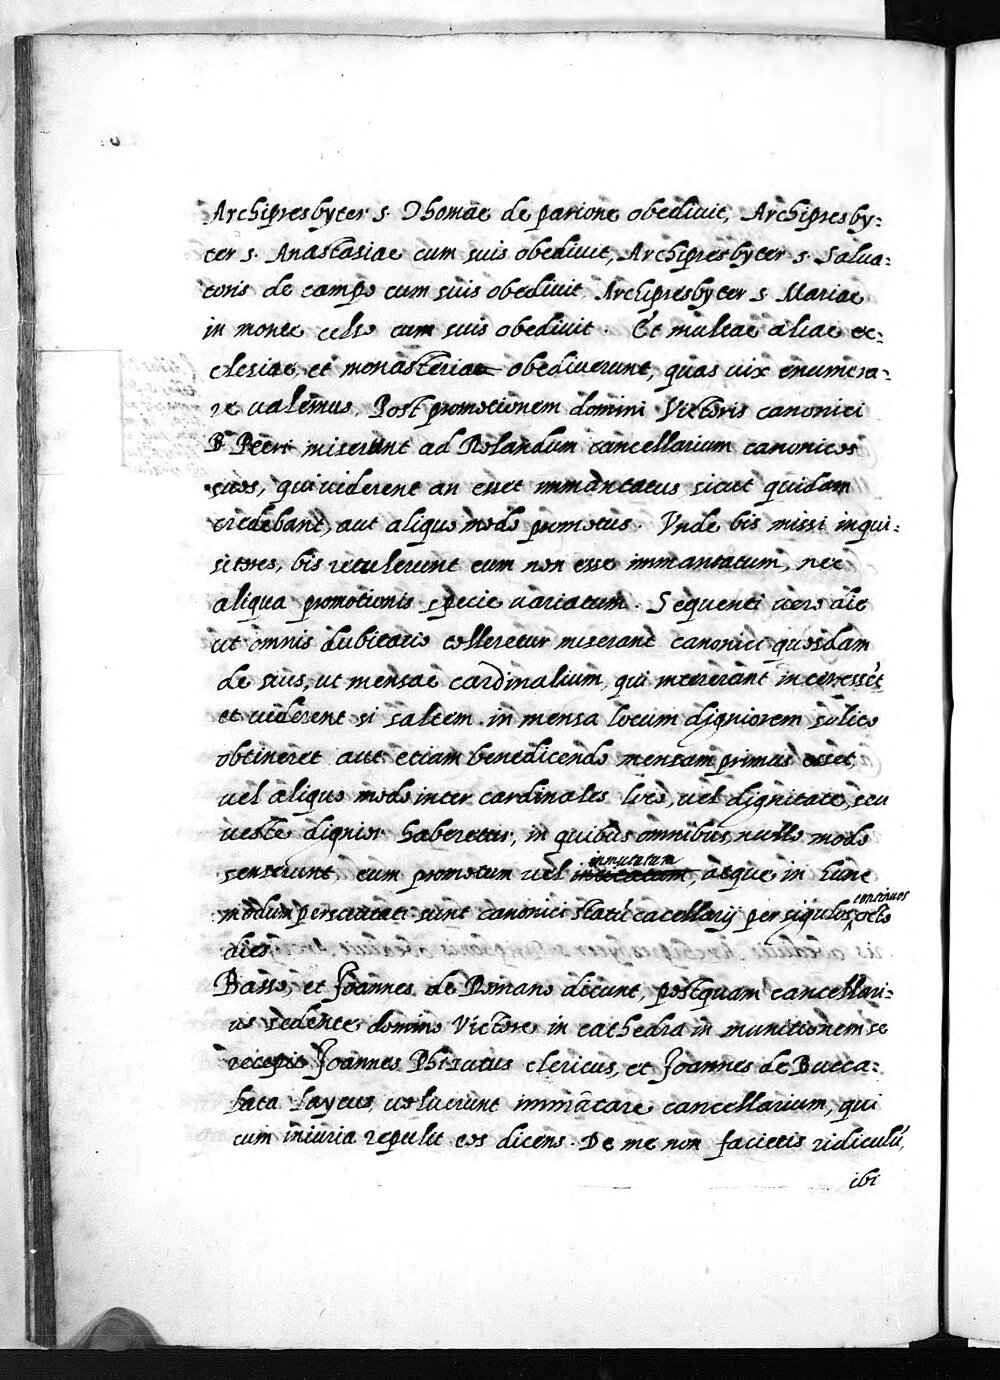 Archipresbyter s. Thomae de parione obediuit, Archipresby:
ter s. Anastasiae cum suis obediuit, Archipresbyter s. Salua:
toris de campo cum suis obediuit, Archipresbyter s. Mariae
in monte celso cum suis obediuit. Et multae aliae ec:
clesiae, et monasteria obediuerunt, quas uix enumera:
re ualemus, Post promotionem domini Victoris canonici
B. Petri miserunt ad Rolandum cancellarium canonicos
suos, qui uiderent an esset immantatus sicut quidam
credebant, aut aliquo modo promotus. Vnde bis missi inqui:
sitores, bis retulerunt eum non esse immantatum, nec
aliqua promotionis specie uariatum. Sequenti uero die
ut omnis dubitatio tolleretur miserunt canonici quosdam
de suis, ut mensae cardinalium, qui interessēt
et uiderent si saltem in mensa locum digniorem solito
obtineret aut etiam benedicendo mensam primus esset,
uel aliquo modo inter cardinales loco, uel dignitate, seu
ueste dignior haberetur, in quibus omnibus, nullo modo
senserunt, eum promotum uel inmutatum, atque in hunc
modum perscrutati sunt canonici statū cācellarij per sīgulos continuos octo
dies.
Basso, et Joannes de Romano dicunt, postquam cancellari:
us sedente domino Victore in cathedra in munitionem se
recepit Joannes Phizatus clericus, et Joannes de Bucca:
lata laycus, uoluerunt immātare cancellarium, qui
cum iniuria repulit eos dicens. De me non facietis ridiculū,
ibi